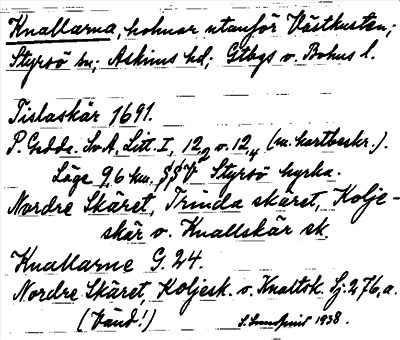 Knallarna, holmar utanför Västkusten;
Styrsö sn; Askims hd; Gtbgs o. Bohus l.
Tislaskär 1691.
P. Gedda. SvA, Litt. I, 12g o. 12, (m. kartbeskr.).
Läge 9,6 km. SSV Styrsö kyrka.
Nordre Skäret, Trinda skäret, Kolje-
skär o. Knallskär sk.
Knallarne G. 24.
Nordre Skäret, Koljesk. o. Knallsk. Sj. 276, a.
(Vänd!) S. Lundqvist 1938.